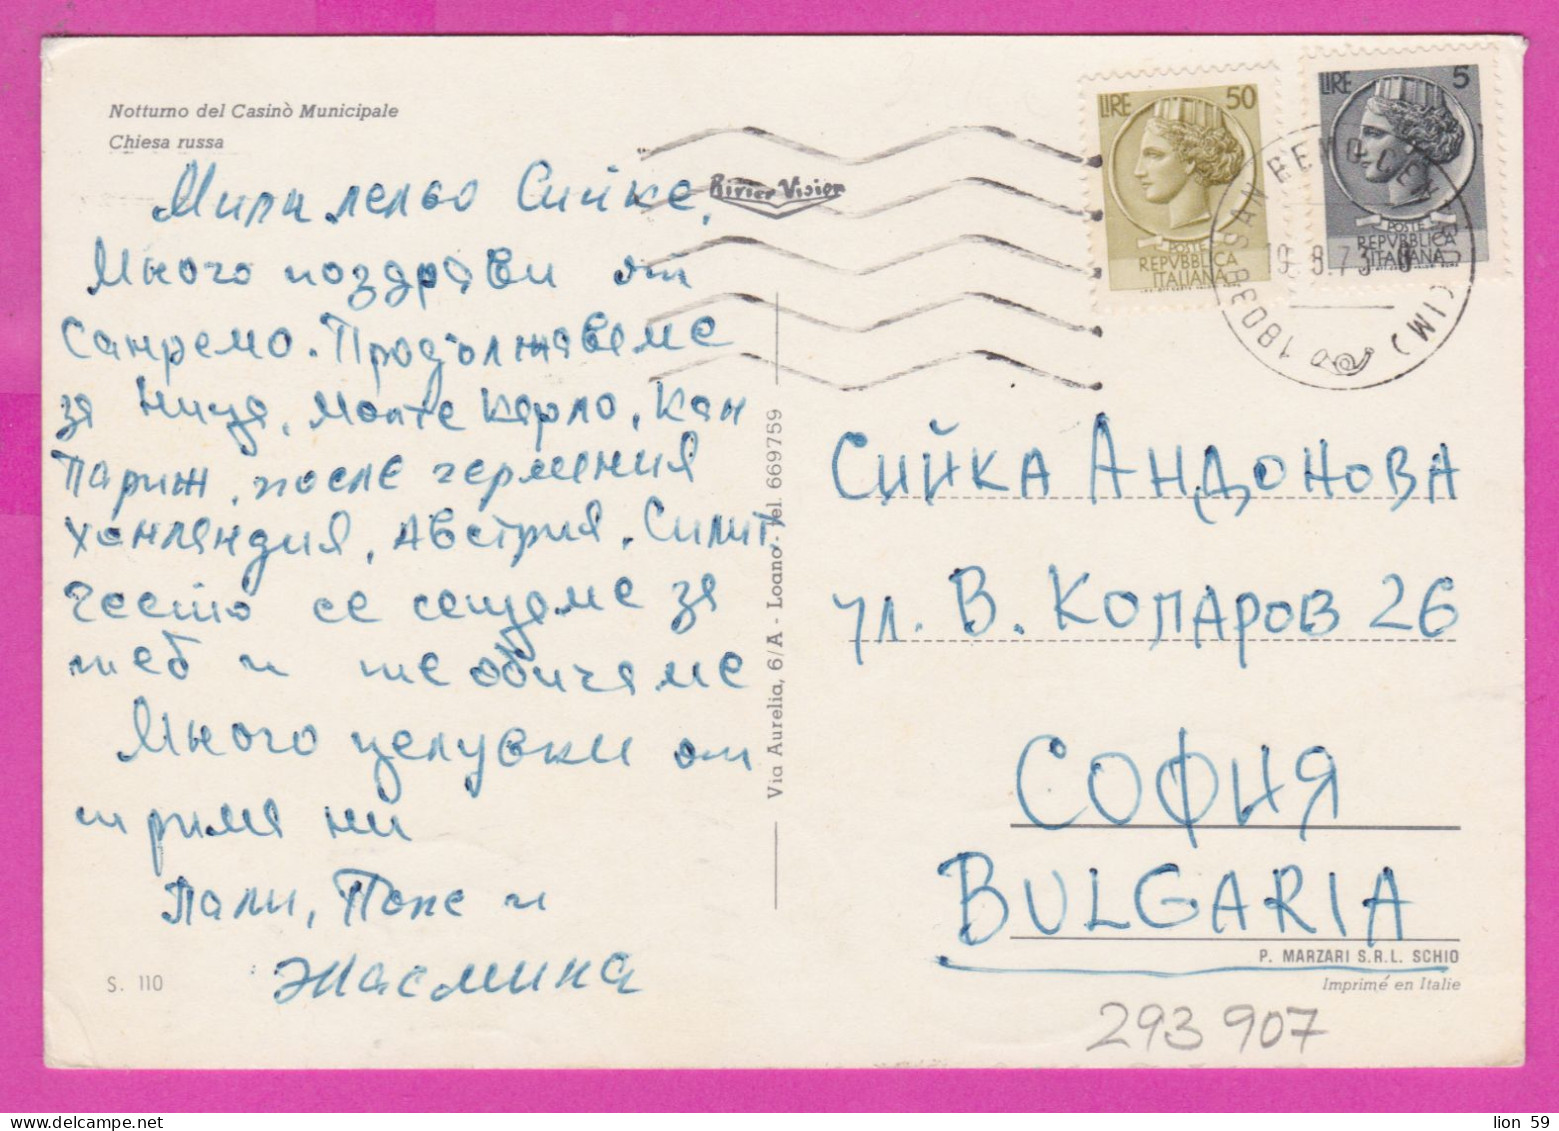 Notturno del Casinò Municipale
Chiesa russa
Мили лельо Сийке,
Много поздрави от
Санремо. Продължаваме
за Ница, Монте Карло, Кан
Париж, после Германия
Ханландия, Австрия.
често се сещаме за
теб и те обичаме
Много целувки от
трима ни
Пали, Попе и
Жасмина
S. 110
Rivier Vision
Via Aurelia, 6/A - Loano - Tel. 669759
LIRE 50
POSTE
REPVBBLICA
ITALIANA
LIRE 5
POSTE
REPVBBLICA
ITALIANA
18038 SAN REMO
(IM)
СИЙКА АНДОНОВА
УЛ. В. КОЛАРОВ 26
СОФИЯ
BULGARIA
P. MARZARI S.R.L. SCHIO
Imprimé en Italie
293 907
lion 59